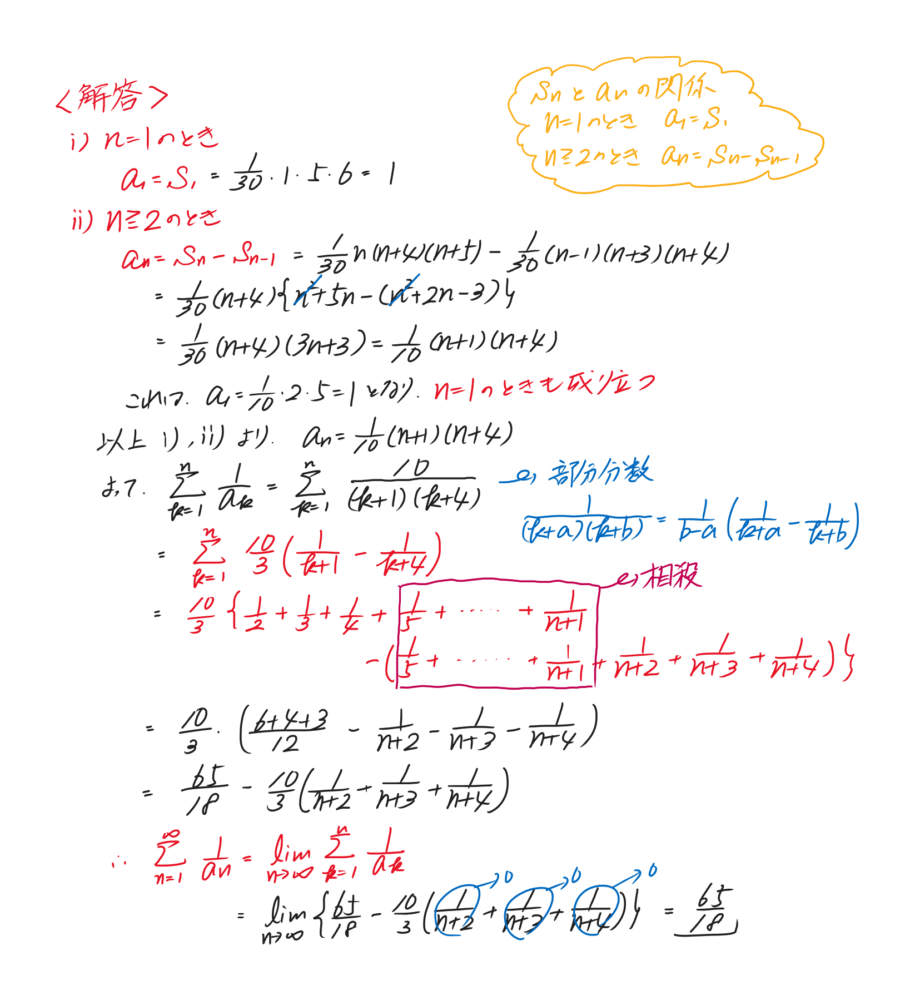 <解答>
Snとanの関係
n=1のとき a₁=S₁
n≧2のとき an=Sn-Sn-1
i) n=1のとき
a₁=S₁=1/30・1・5・6=1
ii) n≧2のとき
an=Sn-Sn-1=1/30 n(n+4)(n+5)-1/30(n-1)(n+3)(n+4)
=1/30(n+4){n²+5n-(n²+2n-3)}
=1/30(n+4)(3n+3)=1/10(n+1)(n+4)
これは、a₁=1/10・2・5=1となり、n=1のときも成り立つ
以上 i),ii)より、an=1/10(n+1)(n+4)
よって、Σ[k=1→n] 1/ak=Σ[k=1→n] 10/((k+1)(k+4))
部分分数
1/((k+a)(k+b))=1/(b-a)(1/(k+a)-1/(k+b))
=Σ[k=1→n] 10/3(1/(k+1)-1/(k+4))
相殺
=10/3{1/2+1/3+1/4+1/5+‥‥‥+1/(n+1)
-(1/5+‥‥‥+1/(n+1)+1/(n+2)+1/(n+3)+1/(n+4))}
=10/3・((6+4+3)/12-1/(n+2)-1/(n+3)-1/(n+4))
=65/18-10/3(1/(n+2)+1/(n+3)+1/(n+4))
∴ Σ[n=1→∞] 1/an=lim[n→∞] Σ[k=1→n] 1/ak
→0 →0 →0
=lim[n→∞]{65/18-10/3(1/(n+2)+1/(n+3)+1/(n+4))}=65/18